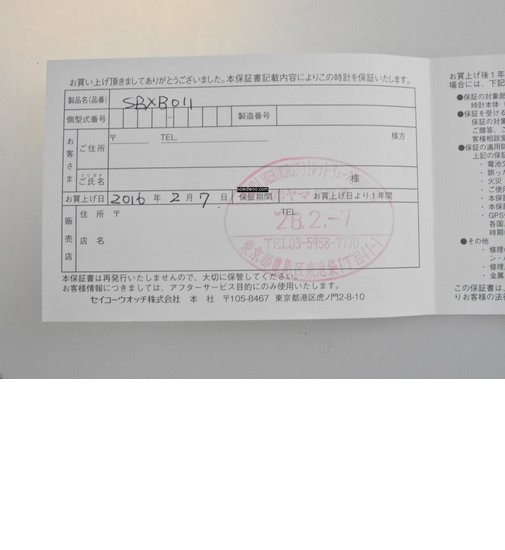 お買い上げ頂きましてありがとうございました。本保証書記載内容によりこの時計を保証いたします。
製品名(品番) SBXB011
側型式番号 - 製造番号
お客さま
ご住所 〒 TEL. 様方
ご氏名 様
お買上げ日 2016年 2月 7日 保証期間 お買上げ日より1年間
powdwoo.com
販売店
住所 〒 TEL.
店名
ヤマ
28.2.-7
TEL.03-5958-7770
東京都豊島区東池袋1丁目41-1
本保証書は再発行いたしませんので、大切に保管してください。
お客様情報につきましては、アフターサービス目的にのみ使用いたします。
セイコーウオッチ株式会社 本社 〒105-8467 東京都港区虎ノ門2-8-10
お買上げ後1年
場合には、下記
●保証の対象部
時計本体(
●保証を受ける
保証の対象
ご贈答、ご
客様相談室
●保証の適用除
上記の保証
・電池交
・誤った
・火災
・ご使用
・本保
・本保
・GPS
各国
時期
●その他
・修理
ン・
・修理
・金属
この保証書は、
りお客様の法律